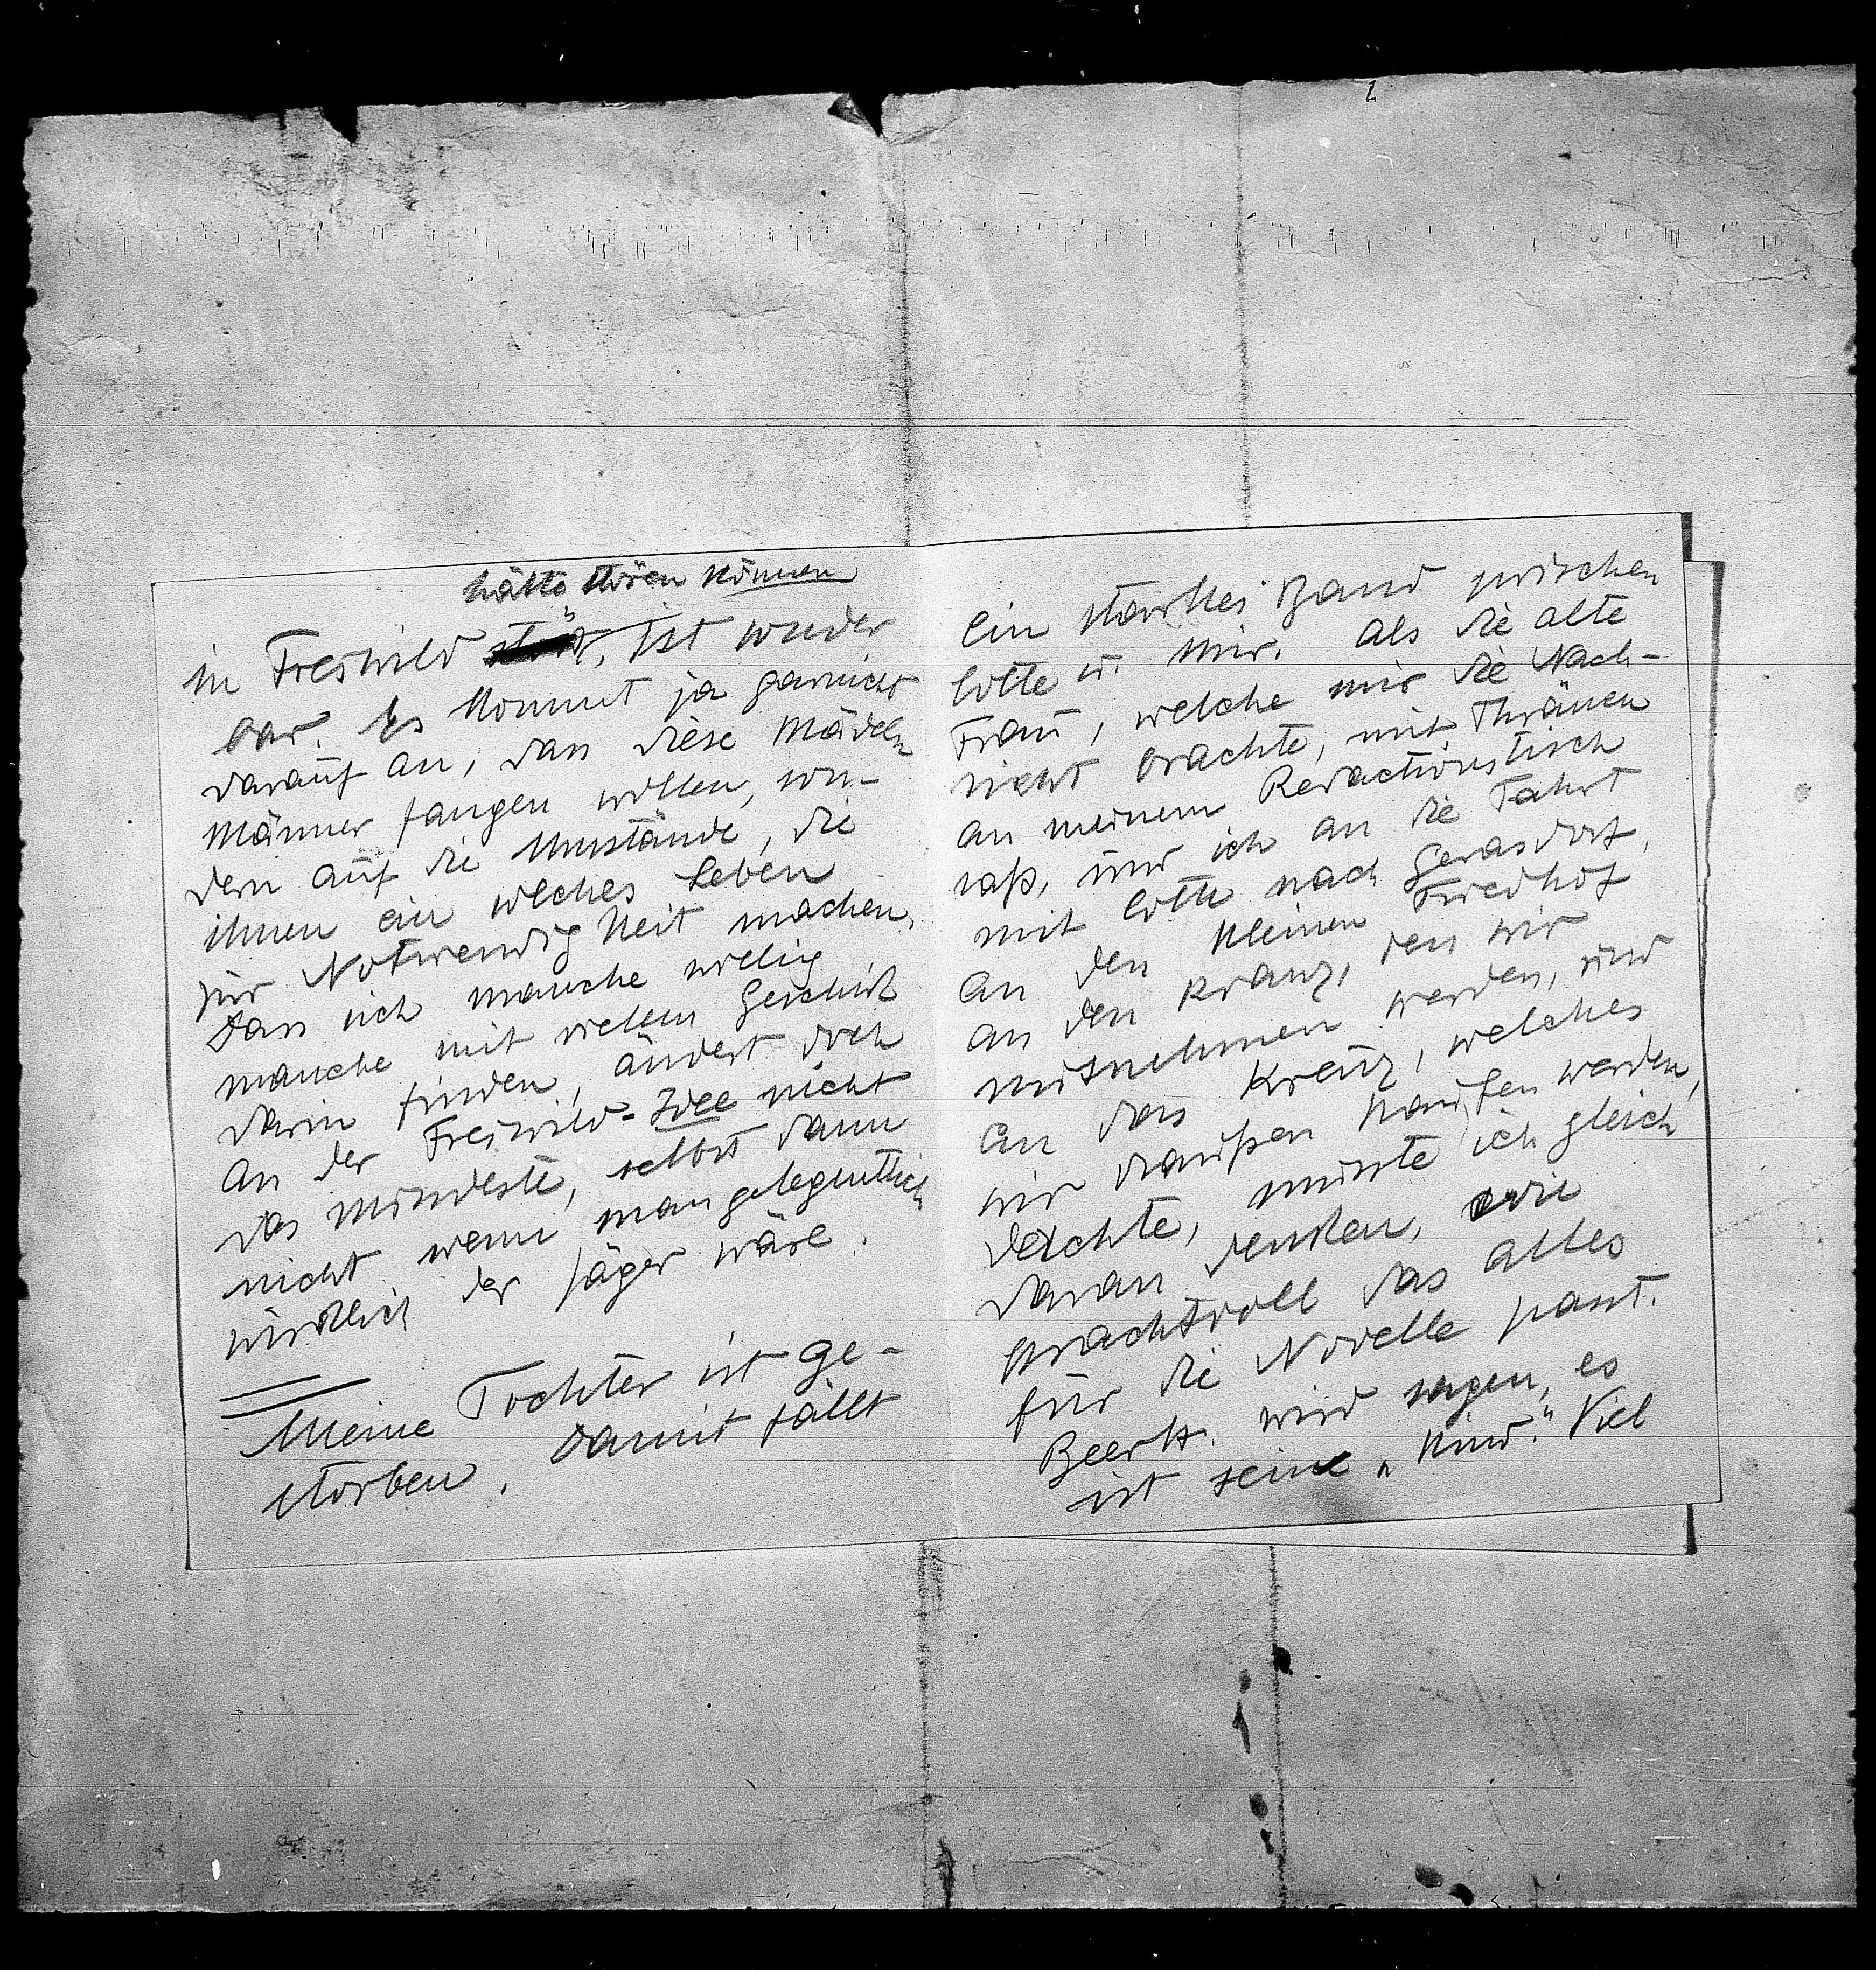 hätte stören können
in Freiwild stört, ist wieder
bar. Es kommt ja garnicht
darauf an, dass diese Mädeln
Männer fangen wollen, son-
dern auf die Umstände, die
ihnen ein solches Leben
zur Notwendigkeit machen.
Dass sich manche willig,
manche mit vielem Geschick
darin finden, ändert doch
an der Freiwild-Idee nicht
das mindeste, selbst dann
nicht wenn man gelegentlich
wirklich der Jäger wäre.
Meine Tochter ist ge-
storben. Damit fällt
ein starkes Band zwischen
Lotte u. mir. Als die alte
Frau, welche mir die Nach-
richt brachte, mit Thränen
an meinem Redactionstisch
saß, und ich an die Fahrt
mit Lotte nach Gerasdorf,
an den kleinen Friedhof
an den Kranz, den wir
mitnehmen werden, und
an das Kreuz, welches
wir draußen kaufen werden,
dachte, musste ich gleich
daran denken, wie
prachtvoll das alles
für die Novelle passt.
Beer H. wird sagen, es
ist seine „Kind". Viel